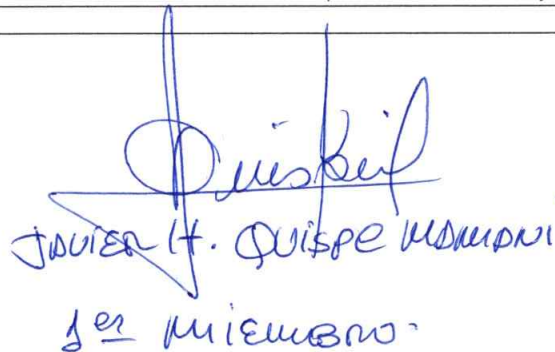 JAVIER H. QUISPE MAMANI
1er MIEMBRO.